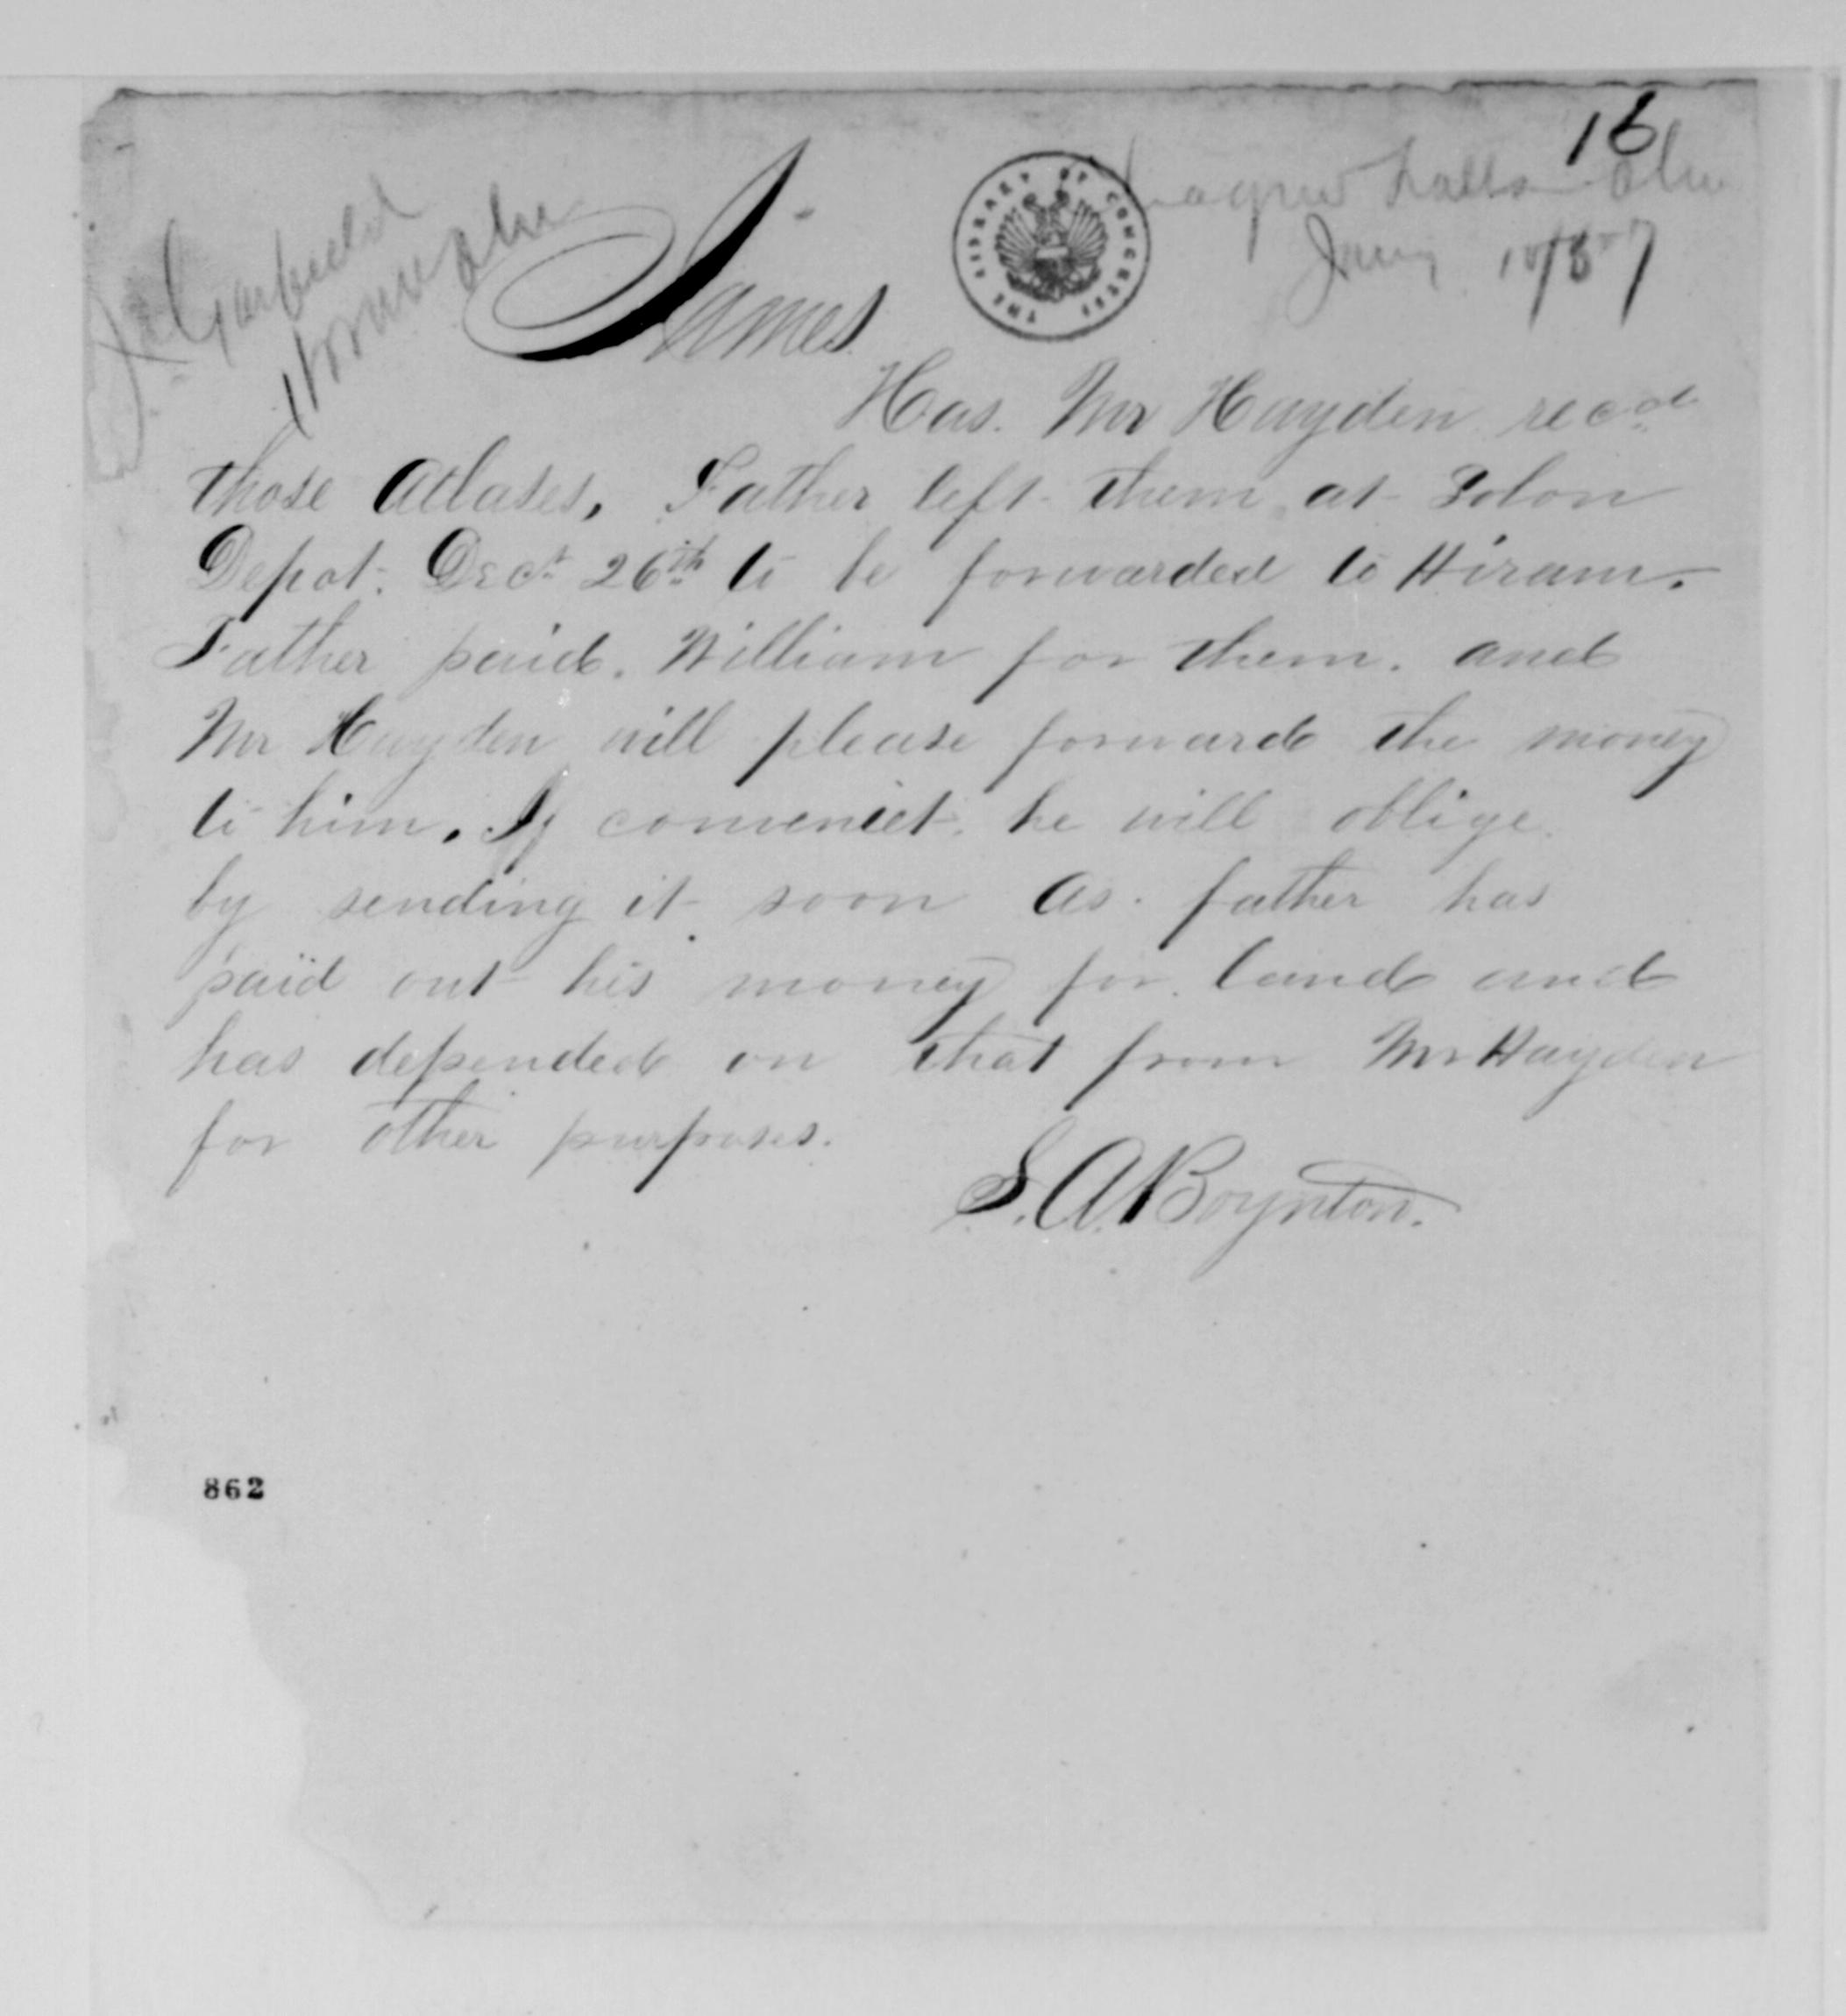 16
Chagrin Falls Ohio
Jany 10/57
J A Garfield
Hiram Ohio
THE LIBRARY OF CONGRESS
James
Has. Mr Hayden recd
those Atlases, Father left them, at Solon
Depot. Dec. 26th to be forwarded to Hiram.
Father paid. William for them. and
Mr Hayden will please forward the money
to him. If convenict. he will oblige
by sending it soon As. father has
paid out his money for. land and
has depended on that from Mr Hayden
for other purposes.
S. A. Boynton.
862